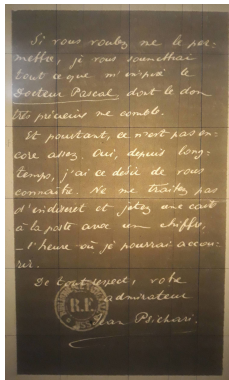 Si vous voulez me le per-
mettre, je vous soumettrai
tout ce que m'inspire le
Docteur Pascal, dont le don
très précieux me comble.
Et pourtant, ce n'est pas en-
core assez. Oui, depuis long-
temps, j'ai ce désir de vous
connaître. Ne me traitez pas
d'indiscret et jetez une carte
à la poste avec un chiffre,
— l'heure où je pourrai accou-
rir.
De tout respect, votre
admirateur
Jean Psichari.
R.F.